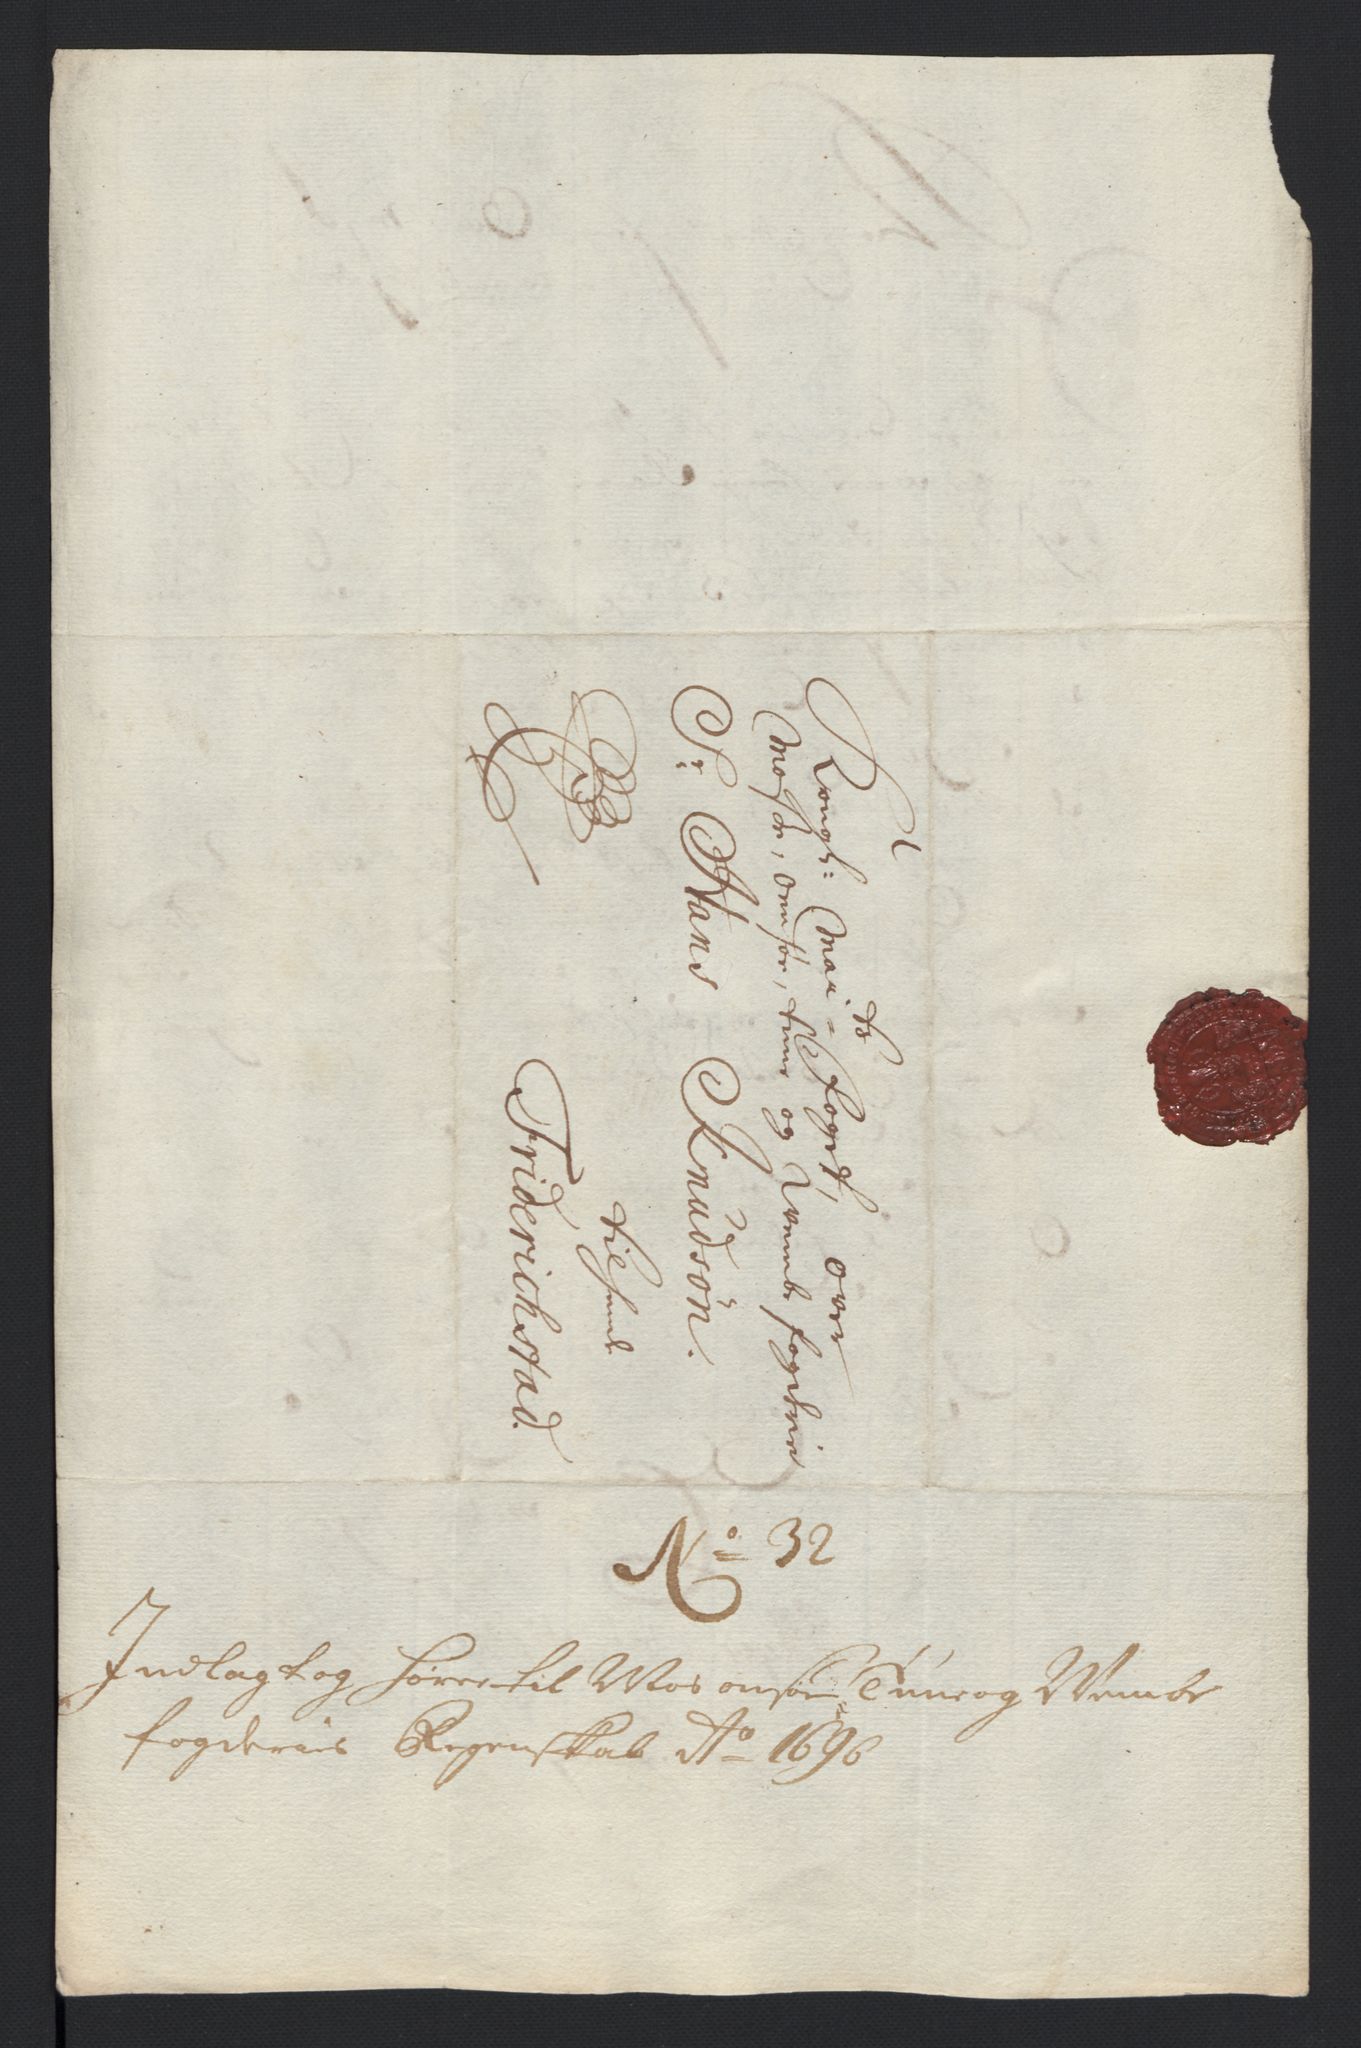 Kongl: Maÿ:ts Foget, over
Mosse, onsøe, tune og Wemb: fogderie
Sr Hans Knudsøn.
tilhænde
Friderichstad.
No 32
Indlagt og hører til Mos onsøe, Tune og Wembe
fogderies Regenskab Ao 1696